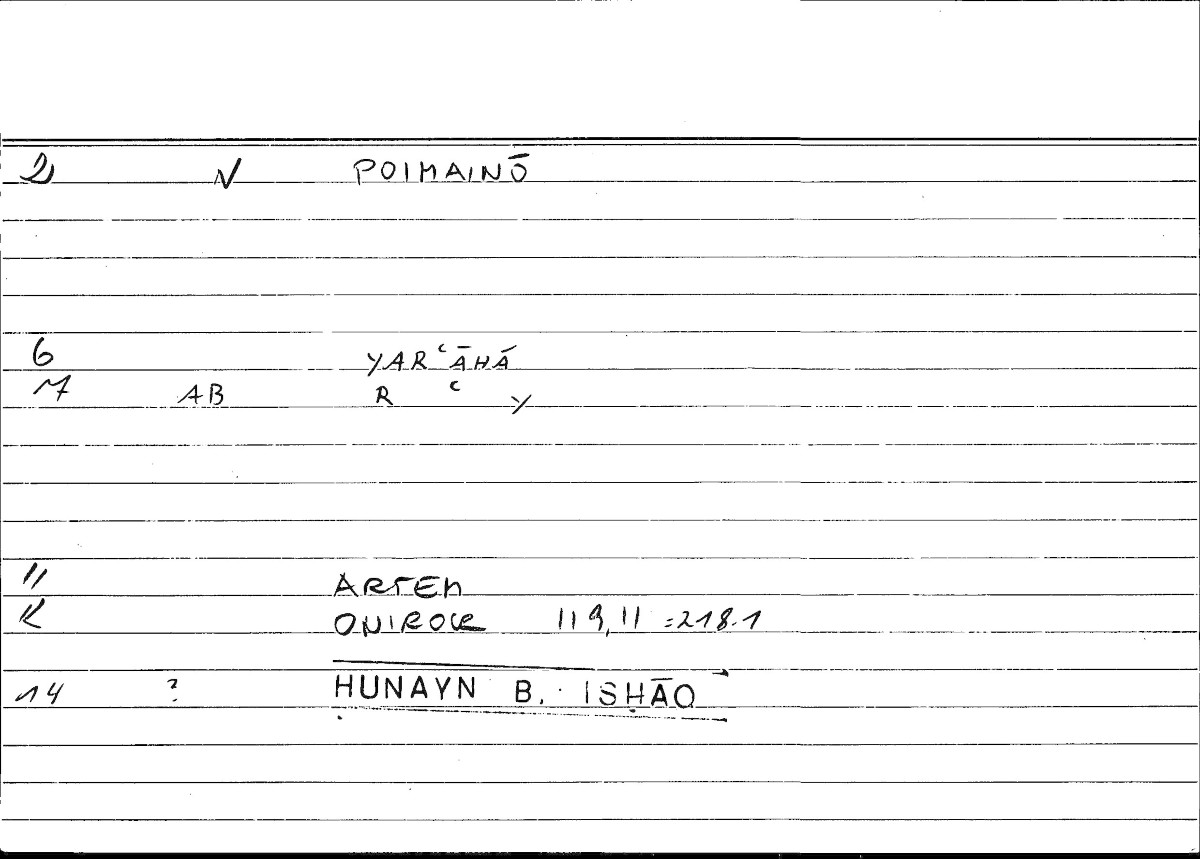 2 N POIMAINŌ
6 YARʿĀHÁ
7 AB R ʿ Y
11 ARTEM
12 ONIROCR 119,11 =218.1
14 ? HUNAYN B. ISḤĀQ